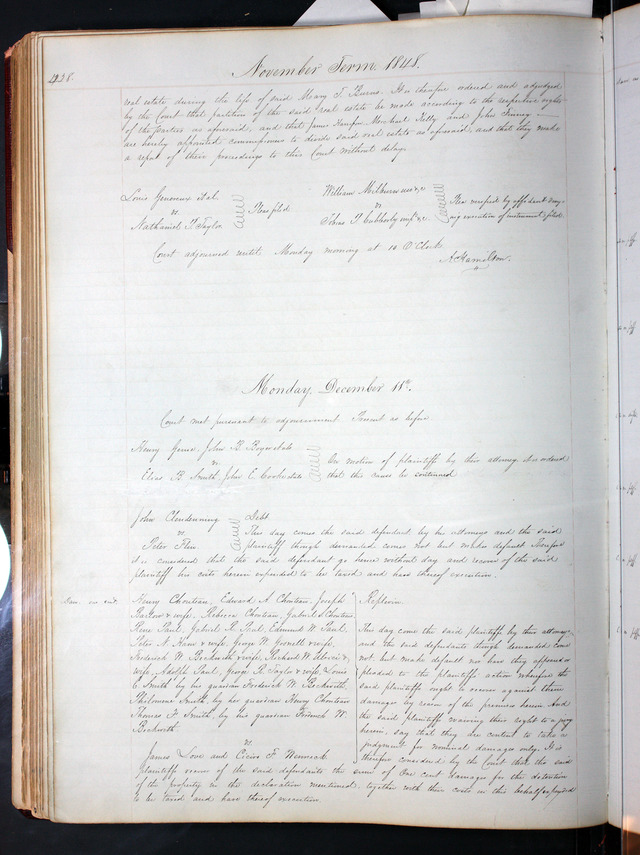 428.
November Term 1848.
real estate during the life of said Mary T. Burns. It is therefore ordered and adjudged
by the Court that partition of the said real estate be made according to the respective rights
of the parties as aforesaid, and that James Michael Kelly and John Finney
are hereby appointed commissioners to divide said real estate as aforesaid, and that they make
a report of their proceedings to this Court without delay.
Louis et al.
vs.
Nathaniel P. Taylor
Plea filed
William Milburn use &c
vs
Tobias P. &c.
Plea verified by affidavit
execution of instrument filed
Court adjourned until Monday morning at 10 O'Clock
A Hamilton.
Monday, December 11th.
Court met pursuant to adjournment. Present as before
Henry John B.
vs
Elias B. Smith, John E. Cooke et al
On motion of plaintiffs by their attorney it is ordered
that this cause be continued
John Clendenning
vs.
Peter
Debt.
This day comes the said defendant by his attorneys and the said
plaintiff though demanded comes not but makes default Therefore
it is considered that the said defendant go hence without day and recover of the said
plaintiff his costs herein expended to be taxed and have thereof execution.
Henry Chouteau, Edward A Chouteau, Joseph
Barlow & wife, Rebecca Chouteau, Gabriel S Chouteau
Rene Paul, Gabriel R. Paul, Edmund W. Paul,
Peter N. Ham & wife, George W. & wife,
Frederick W. Beckwith & wife, Richard W. &
wife, Adolph Paul, George R. Taylor & wife, Louis
C Smith by his guardian Frederick W. Beckwith,
Philomene Smith, by her guardian Henry Chouteau
Thomas F. Smith, by his guardian Frederick W.
Beckwith.
vs.
James Love and F.
Replevin
This day come the said plaintiffs by their attorneys
and the said defendants though demanded come
not but make default nor have they appeared or
pleaded to the plaintiffs action wherefore the
said plaintiffs ought to recover against them
damages by reason of the premises herein. And
the said plaintiffs waiving their right to a jury
herein, say that they are content to take a
judgment for nominal damages only. It is
therefore considered by the Court that the said
plaintiffs recover of the said defendants the sum of One cent damages for the detention
of the property in the declaration mentioned, together with their costs in this behalf expended
to be taxed and have thereof execution.